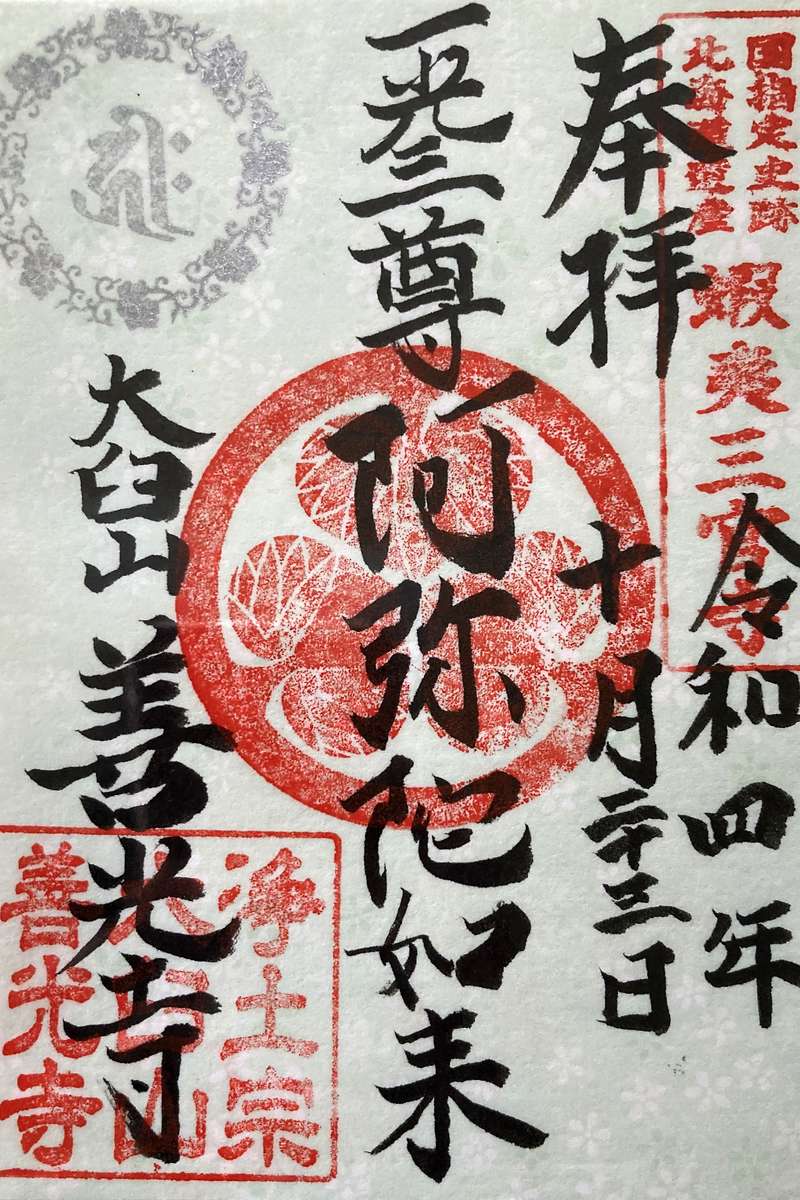 国指定史跡
北海道遺産
蝦夷三官寺
奉拝
令和四年
十月二十三日
一光三尊阿弥陀如来
大臼山善光寺
浄土宗
大臼山
善光寺